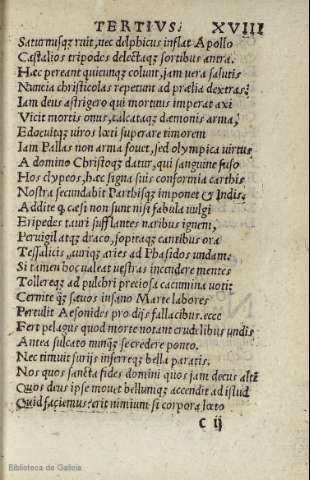 TERTIVS: XVIII
Saturnusq; ruit, nec delphicus inflat Apollo
Castalios tripodes delectaq; sortibus antra.
Hac pereant quicunq; colunt, jam vera salutis
Nuncia christicolas repetunt ad prælia dextras:
Iam deus astrigero qui mortuus imperat axi
Vicit mortis onus, calcataq; dæmonis arma,
Edocuitq; uiros læti superare timorem
Iam Pallas non arma fouet, sed olympica uirtus
A domino Christoq; datur, qui sanguine fuso
Hos clypeos, hac signa suis conformia carthis
Nostra secundabit Parthisq; imponet & Indis.
Addite q, cæsi non sunt nisi fabula uulgi
Eripedes tauri sufflantes naribus ignem,
Peruigil atq; draco, sopitaq; cantibus ora
Tessalicis, auriq; aries ad Phasidos undam.
Si tamen hoc ualeat uestras incendere mentes
Tollereq; ad pulchri preciosa cacumina uoti:
Cernite q; sæuos insano Marte labores
Pertulit Aesonides pro dijs fallacibus. ecce
Fert pelagus quod morte notant crudelibus undis
Antea sulcato nunq; se credere ponto.
Nec timuit surijs inferreq; bella paratis.
Nos quos sancta fides domini quos jam decus altū
Quos deus ipse mouet bellumq; accendit ad istud
Quid faciemus: erit nimium si corpora læto
C ij
Biblioteca de Galicia